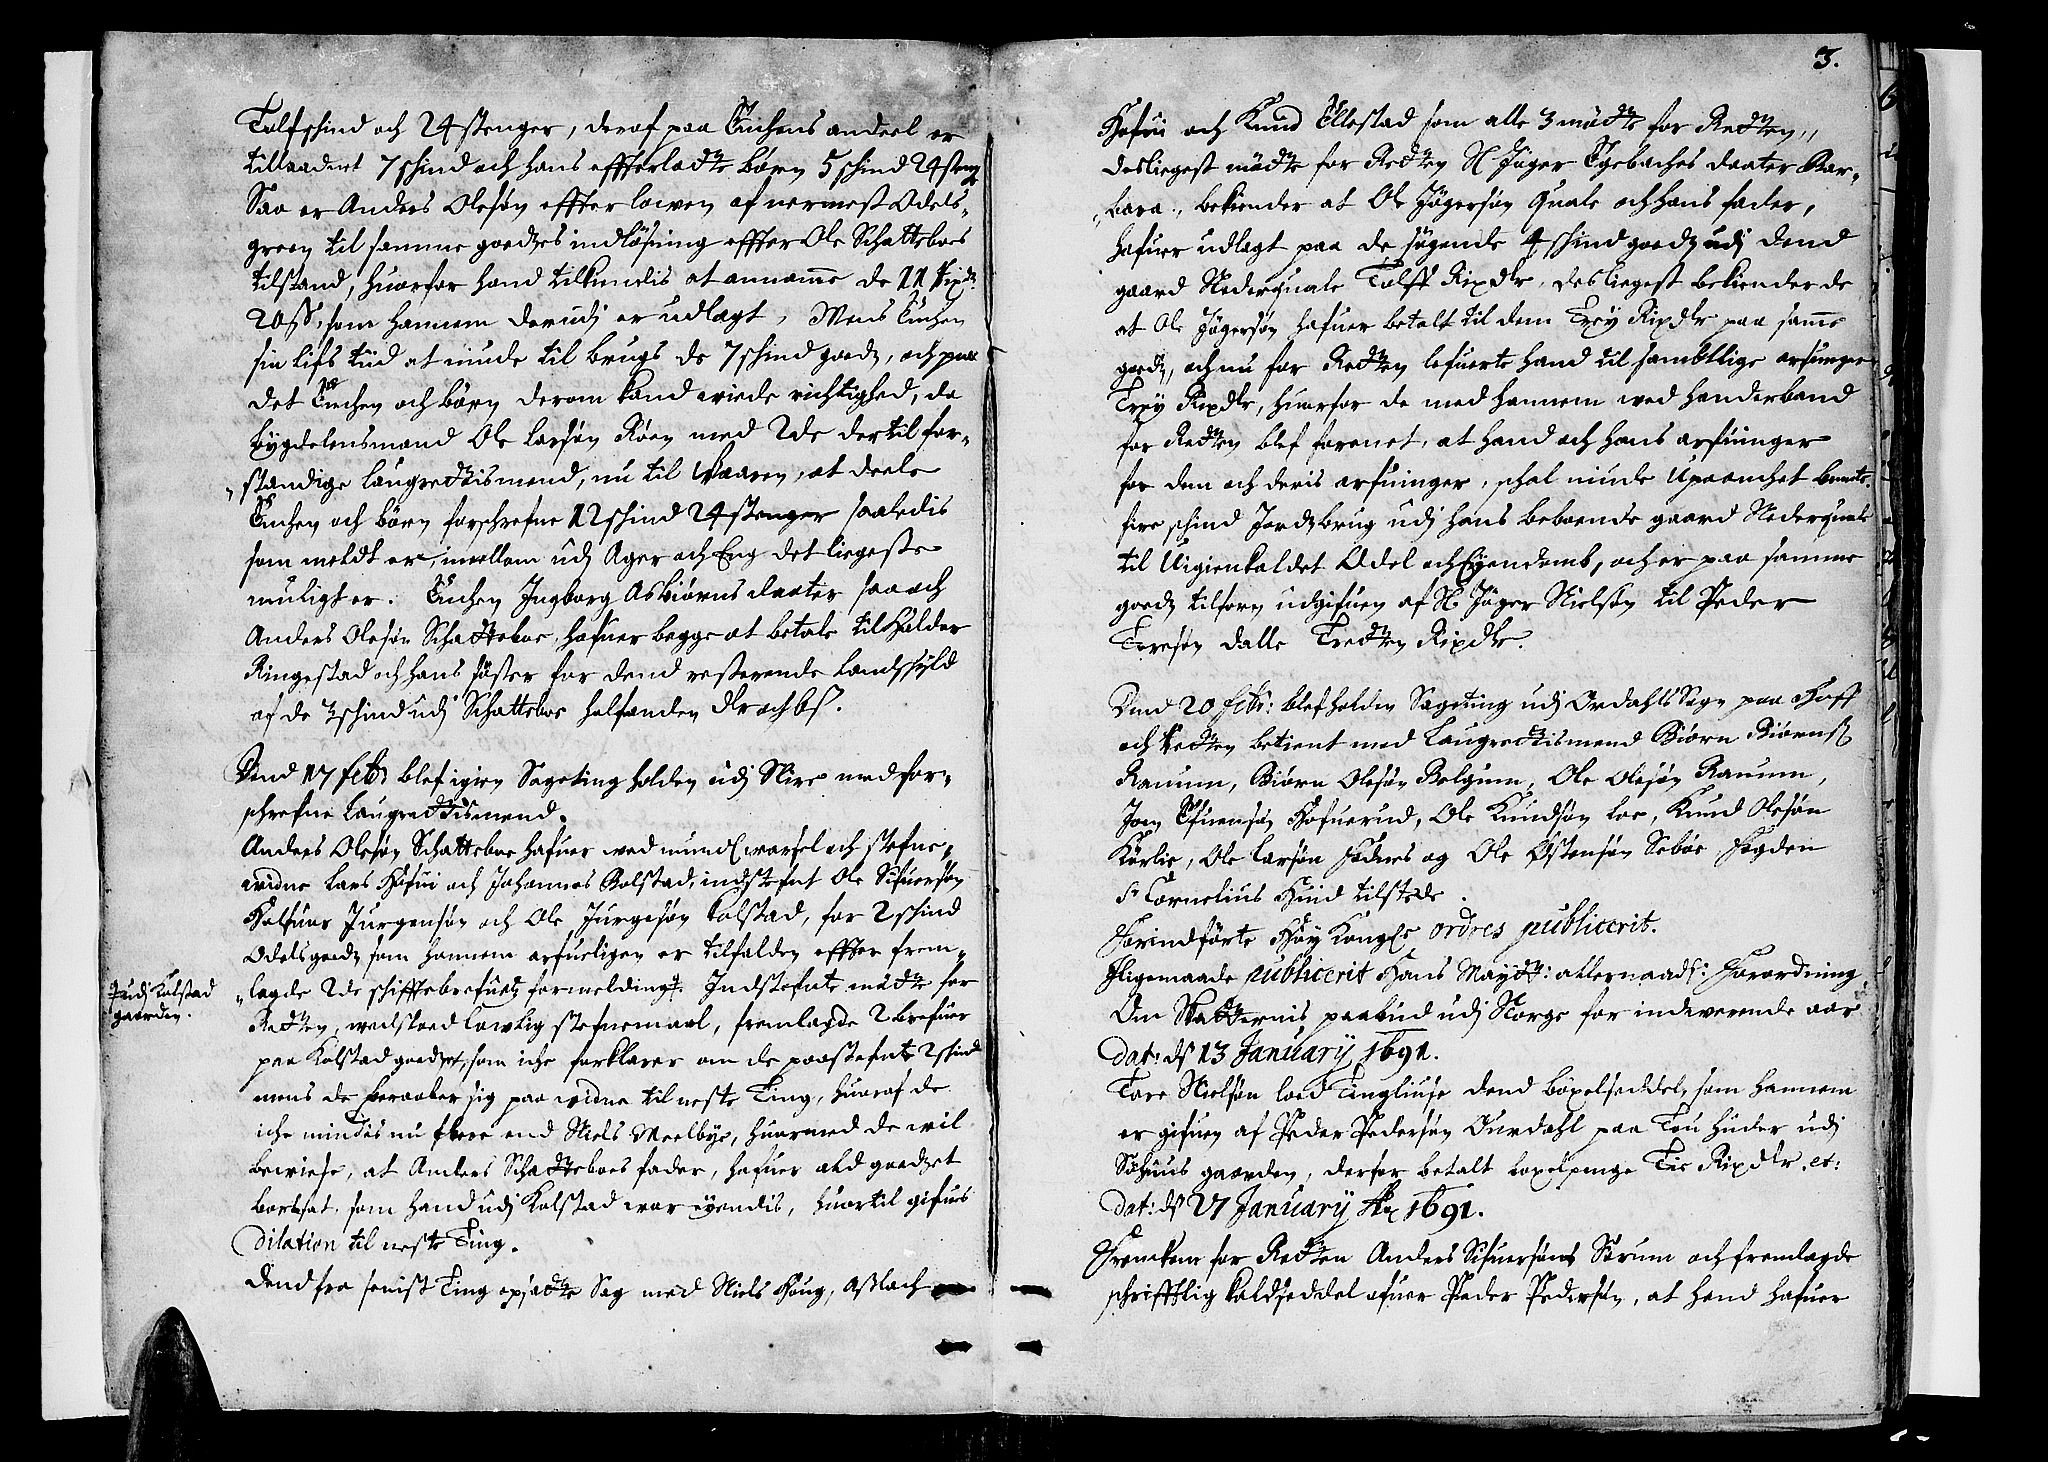 Tolf schind och 24 stenger, deraf paa Enchens andeel er
tillaadent 7 schind och hans effterladte börn 5 schind 24 stenger
Saa er Anders Olesøn effter lowen af nermest Odels-
green til samme goedtzes indløsning effter Ole Schatteboes
tilstand, huorfor hand tilkiendis at annamme de 11 Rixdr
20ß, som hannem derudj er udlagt, Mens Enchen
sin lifs tiid at niude til brugs de 7 schind goedtz, och paa
det Enchen och börn derom kand wiede richtighed, da
bygdelensmand Ole Larsøn Röen med 2de dertil for-
standige laugrettismend, nu til Waaren, at deele
Enchen och börn forschrefne 12 schind 24 stenger saaledis
som meldt er, imellom udj Ager och Eng det liegeste
muligt er. Enchen Ingborg Asbiörns daater saa och
Anders Olesøn Schatteboe, hafuer begge at betale til Halder
Ringestad och hans söster for dend resterende landschyld
af de 3 schind udj Schatteboe halfanden dlr och 6ß.
Dend 17 febr blef igien Sageting holden udj Slire med for-
schrefne laugrettismend.
Anders Olesøn Schatteboe hafuer med mundl warsel och stefne-
widne Lars Höfui och Johannes Kolstad, indstefnt Ole Sifuersøn
Halfuor Jurgensøn och Ole Jurgesøn Kolstad, for 2 schind
Odelsgoedtz som hannem arfueligen er tilfalden effter frem-
lagde 2de schifftebrefuets formelding. Indstefnte mötte for
Retten, wedstoed lowlig stefnemaal, fremlagde 2 brefuer
paa Kolstad goedtzet, som iche forklarer om de paastefnte 2 schind
mens de beraaber sig paa widne til neste Ting, huoraf de
iche mindis nu flere end Niels Meelbye, huormed de wil
bewiese, at Anders Schatteboes fader, hafuer ald goedtzet
bortsat, som hand udj Kolstad war eyendis, huortil gifues
dilation til neste Ting.
Dend fra senist Ting opsatte Sag med Niels Houg, Aßlach
J udj Kolstad
gaarden.
3.
Höfui och Knud Ellestad som alle 3 mödte for Retten,
desliegest mödte for Retten Sl Jöger Egebaches daater Bar-
bara, bekiender at Ole Jögersøn Quale och hans fader,
hafuer udlagt paa de søgende 4 schind goedtz udj dend
gaard Nederquale Tolff Rixdlr, desliegest bekiender de
at Ole Jögersøn hafuer betalt til dem Trej Rixdlr paa samme
goedtz, och nu for Retten lefuerte hand til sambtlige arfuinger
Trej Rixdlr, huorfor de med hannem wed handerband
for Retten blef forenet, at hand och hans arfuinger
for dem och deris arfuinger, schal niude Upaanchet bemte
fire schind Jordtzbrug udj hans beboende gaard Nederquale
til Uigienkaldet Odel och Eyendomb, och er paa samme
goedtz tilforn udgifuen af Sl Jöger Nielsøn til Peder
Toresøn Dalle Tretten Rixdlr.
Dend 20 febr: blef holden Sageting udj Ordahls Sogn paa Hoff
och Retten betient med laugrettismend Biörn Biörnsß
Ranum, Biörn Olesøn Belgum, Ole Olesøn Ranum,
Joen Efuensøn Hofuerud, Ole Knudsøn Loe, Knud Olesøn
Körlie, Ole Larsøn Foedues og Ole Østensøn Sebøe, Fogden
Sr Cornelius Hind tilstede.
Förindförte Höy Kongl ordres publicerit.
Eligemaade publicerit Hans Maytt: allernaads: Forordning
Om Skatternis paabud udj Norge for indeverende aar
dat: ds 13 January 1691.
Tore Nielsøn loed Tingliuse dend böxelseddel, som hannem
er gifuen af Peder Pedersøn Ourdahl paa Tou Huder udj
Söhuus gaarden, derfor betalt böxelpenge Tie Rixdlr. et:
dat: ds 27 January Ao 1691.
Fremkom for Retten Anders Sifuersøns Sørum och fremlagde
schrifftlig kaldseddel ofuer Peder Pedersøn, at hand hafuer